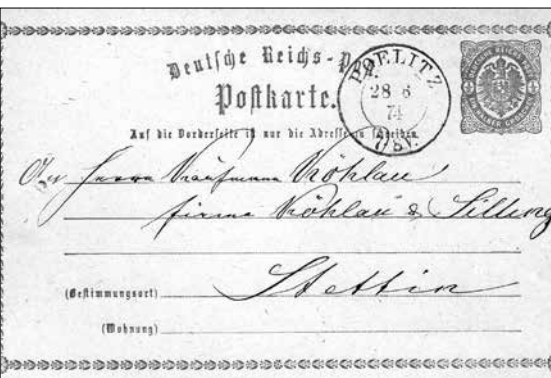 Deutsche Reichs-P
Postkarte.
POELITZ
28 6
74
Auf die Vorderseite ist nur die Adresse zu schreiben.
Herrn Kaufmann
Firma &
Stettin
(Bestimmungsort)
(Wohnung)